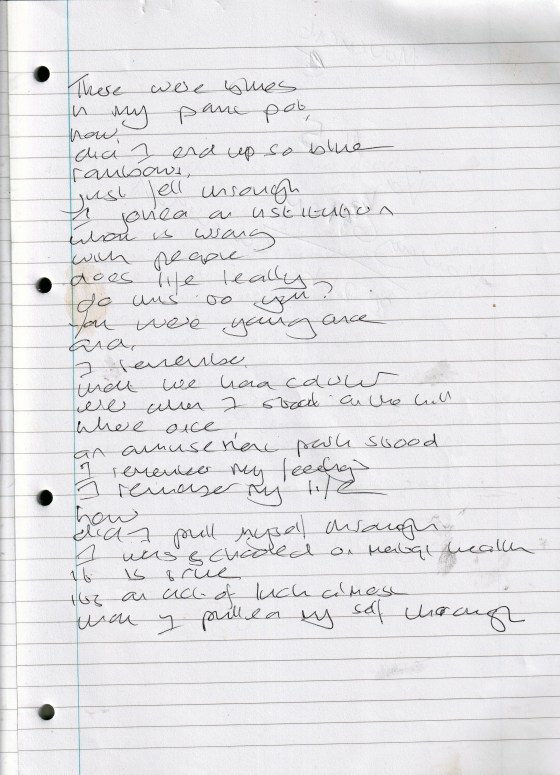 There were times
in my panic pad,
how,
did I end up so blue
rainbows,
just fell through
I joined an institution
what is wrong
with people
does life really
do this to you?
you were young once
and,
I remember
that we had colour
even when I stood on the hill
where once
an amusement park stood
I remember my feelings
I remember my life
how
did I pull myself through
I was schooled on mental health
it is true
its an act of luck almost
that I pulled my self through